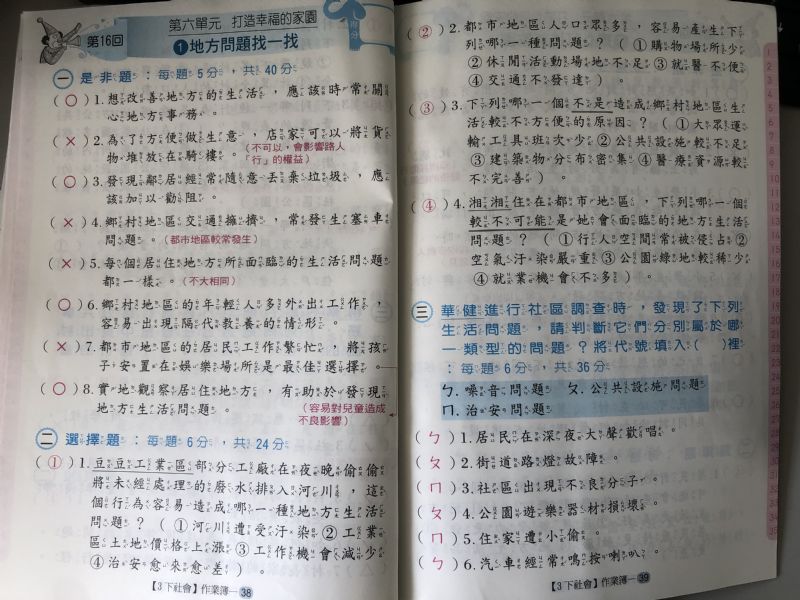 第六單元 打造幸福的家園
第16回
1 地方問題找一找
得分
一 是非題：每題5分，共40分
(○)1.想改善地方的生活，應該時常關
心地方事務。
(×)2.為了方便做生意，店家可以將貨
物堆放在騎樓。(不可以，會影響路人
「行」的權益)
(○)3.發現鄰居經常隨意丟棄垃圾，應
該加以勸阻。
(×)4.鄉村地區交通擁擠，常發生塞車
問題。(都市地區較常發生)
(×)5.每個居住地方所面臨的生活問題
都一樣。(不大相同)
(○)6.鄉村地區的年輕人多外出工作，
容易出現隔代教養的情形。
(×)7.都市地區的居民工作繁忙，將孩
子安置在娛樂場所是最佳選擇。
(○)8.實地觀察居住地方，有助於發現
地方生活問題。
(容易對兒童造成
不良影響)
二 選擇題：每題6分，共24分
(①)1.豆豆工業區部分工廠在夜晚偷偷
將未經處理的廢水排入河川，這
個行為容易造成哪一種地方生活
問題？(①河川遭受汙染②工業
區土地價格上漲③工作機會減少
④治安愈來愈差)
【3下社會】作業簿—38
(②)2.都市地區人口眾多，容易產生下
列哪一種問題？(①購物場所少
②休閒活動場地不足③就醫不便
④交通不發達)。
(③)3.下列哪一個不是造成鄉村地區生
活較不方便的原因？(①大眾運
輸工具班次少②公共設施較不足
③建築物分布密集④醫療資源較
不完善)。
(④)4.湘湘住在都市地區，下列哪一個
較不可能是她會面臨的地方生活
問題？(①行人空間常被侵占②
空氣汙染嚴重③公園綠地較稀少
④就業機會不多)。
三 華健進行社區調查時，發現了下列
生活問題，請判斷它們分別屬於哪
一類型的問題？將代號填入( )裡
：每題6分，共36分
ㄅ.噪音問題 ㄆ.公共設施問題
ㄇ.治安問題
(ㄅ)1.居民在深夜大聲歡唱。
(ㄆ)2.街道路燈故障。
(ㄇ)3.社區出現不良分子。
(ㄆ)4.公園遊樂器材損壞。
(ㄇ)5.住家遭小偷。
(ㄅ)6.汽車經常鳴按喇叭。
【3下社會】作業簿—39